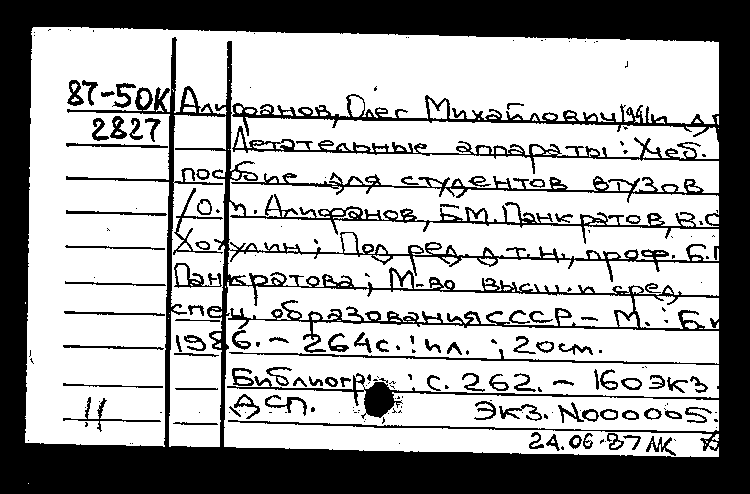 87-50К Алифанов, Олег Михайлович/1941и др
2827 Летательные аппараты: Учеб.
пособие для студентов втузов
/О.М. Алифанов, Б.М. Панкратов, В.С
Хохулин; Под ред. д.т.н., проф. Б.М
Панкратова; М-во высш. и сред.
спец. образования СССР. - М. : Б.и
1986. - 264с. : ил. ; 20см.
Библиогр. : с. 262. - 160 экз.
11 ДСП. Экз. N000005.
24.06.87 ЛК